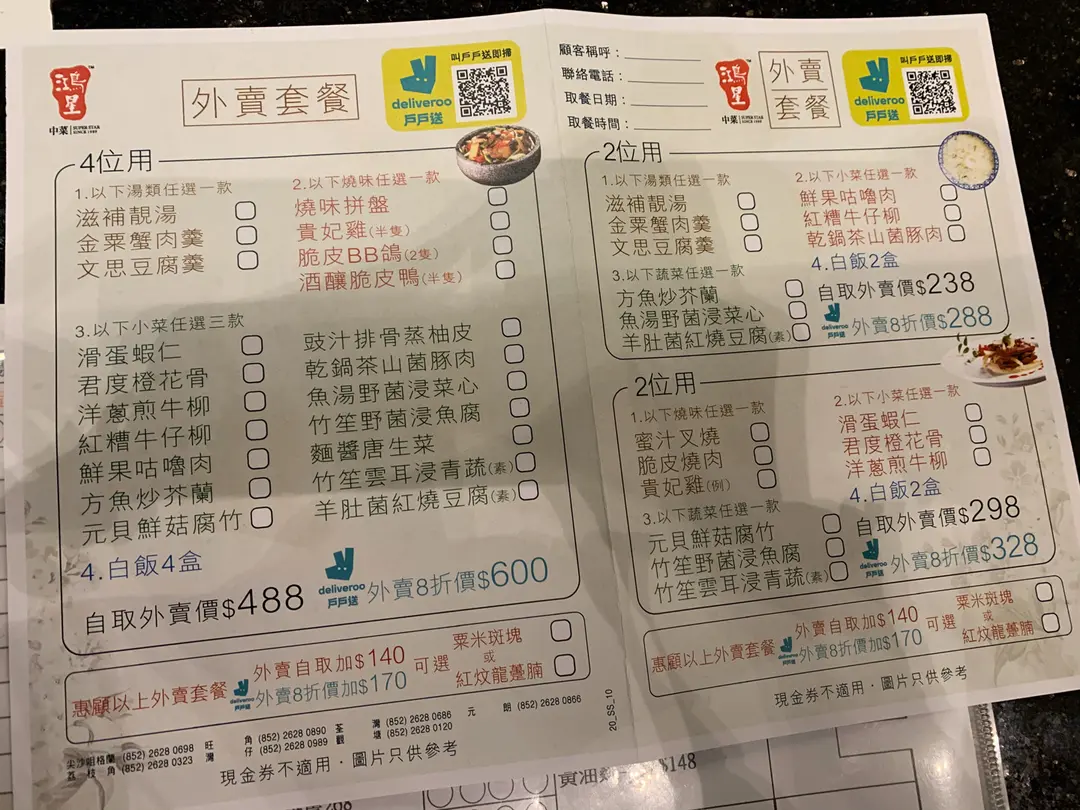 鴻星
中菜 SUPER STAR
SINCE 1989
外賣套餐
叫戶戶送即掃
deliveroo
戶戶送
4位用
1.以下湯類任選一款
滋補靚湯
金粟蟹肉羹
文思豆腐羹
2.以下燒味任選一款
燒味拼盤
貴妃雞(半隻)
脆皮BB鴿(2隻)
酒釀脆皮鴨(半隻)
3.以下小菜任選三款
滑蛋蝦仁
君度橙花骨
洋蔥煎牛柳
紅糟牛仔柳
鮮果咕嚕肉
方魚炒芥蘭
元貝鮮菇腐竹
豉汁排骨蒸柚皮
乾鍋茶山菌豚肉
魚湯野菌浸菜心
竹笙野菌浸魚腐
麵醬唐生菜
竹笙雲耳浸青蔬(素)
羊肚菌紅燒豆腐(素)
4.白飯4盒
自取外賣價$488
deliveroo
戶戶送
外賣8折價$600
惠顧以上外賣套餐
外賣自取加$140
deliveroo
戶戶送
外賣8折價加$170
可選
粟米斑塊
或
紅炆龍躉腩
尖沙咀格蘭 (852) 2628 0698 旺角 (852) 2628 0890 荃灣 (852) 2628 0686 元朗 (852) 2628 0866
荔枝角 (852) 2628 0323 灣仔 (852) 2628 0989 觀塘 (852) 2628 0120
現金券不適用．圖片只供參考
20_SS_10
顧客稱呼：
聯絡電話：
取餐日期：
取餐時間：
鴻星
中菜 SUPER STAR
SINCE 1989
外賣
套餐
叫戶戶送即掃
deliveroo
戶戶送
2位用
1.以下湯類任選一款
滋補靚湯
金粟蟹肉羹
文思豆腐羹
2.以下小菜任選一款
鮮果咕嚕肉
紅糟牛仔柳
乾鍋茶山菌豚肉
3.以下蔬菜任選一款
方魚炒芥蘭
魚湯野菌浸菜心
羊肚菌紅燒豆腐(素)
4.白飯2盒
自取外賣價$238
deliveroo
戶戶送
外賣8折價$288
2位用
1.以下燒味任選一款
蜜汁叉燒
脆皮燒肉
貴妃雞(例)
2.以下小菜任選一款
滑蛋蝦仁
君度橙花骨
洋蔥煎牛柳
3.以下蔬菜任選一款
元貝鮮菇腐竹
竹笙野菌浸魚腐
竹笙雲耳浸青蔬(素)
4.白飯2盒
自取外賣價$298
deliveroo
戶戶送
外賣8折價$328
惠顧以上外賣套餐
外賣自取加$140
deliveroo
戶戶送
外賣8折價加$170
可選
粟米斑塊
或
紅炆龍躉腩
現金券不適用．圖片只供參考
黃油
$148